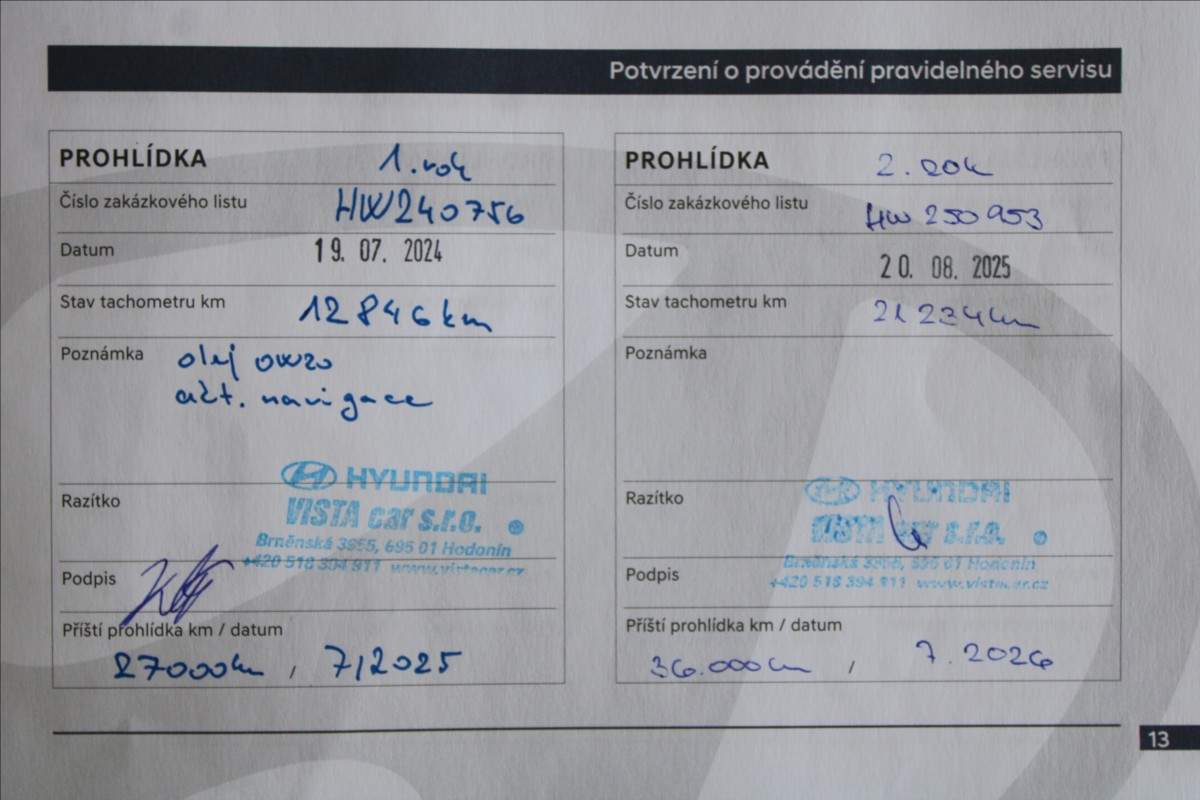 Potvrzení o provádění pravidelného servisu
PROHLÍDKA 1. rok
Číslo zakázkového listu HW240756
Datum 19. 07. 2024
Stav tachometru km 12846km
Poznámka olej 0W20
akt. navigace
Razítko HYUNDAI
VISTA car s.r.o.
Brněnská 3965, 695 01 Hodonín
+420 518 304 911 www.vistacar.cz
Podpis
Příští prohlídka km / datum
27000km / 7/2025
PROHLÍDKA 2. rok
Číslo zakázkového listu HW250953
Datum 20. 08. 2025
Stav tachometru km
Poznámka
Razítko HYUNDAI
VISTA car s.r.o.
Brněnská 695 01 Hodonín
+420 518 394 911 www.vistacar.cz
Podpis
Příští prohlídka km / datum
36.000km / 7.2026
13